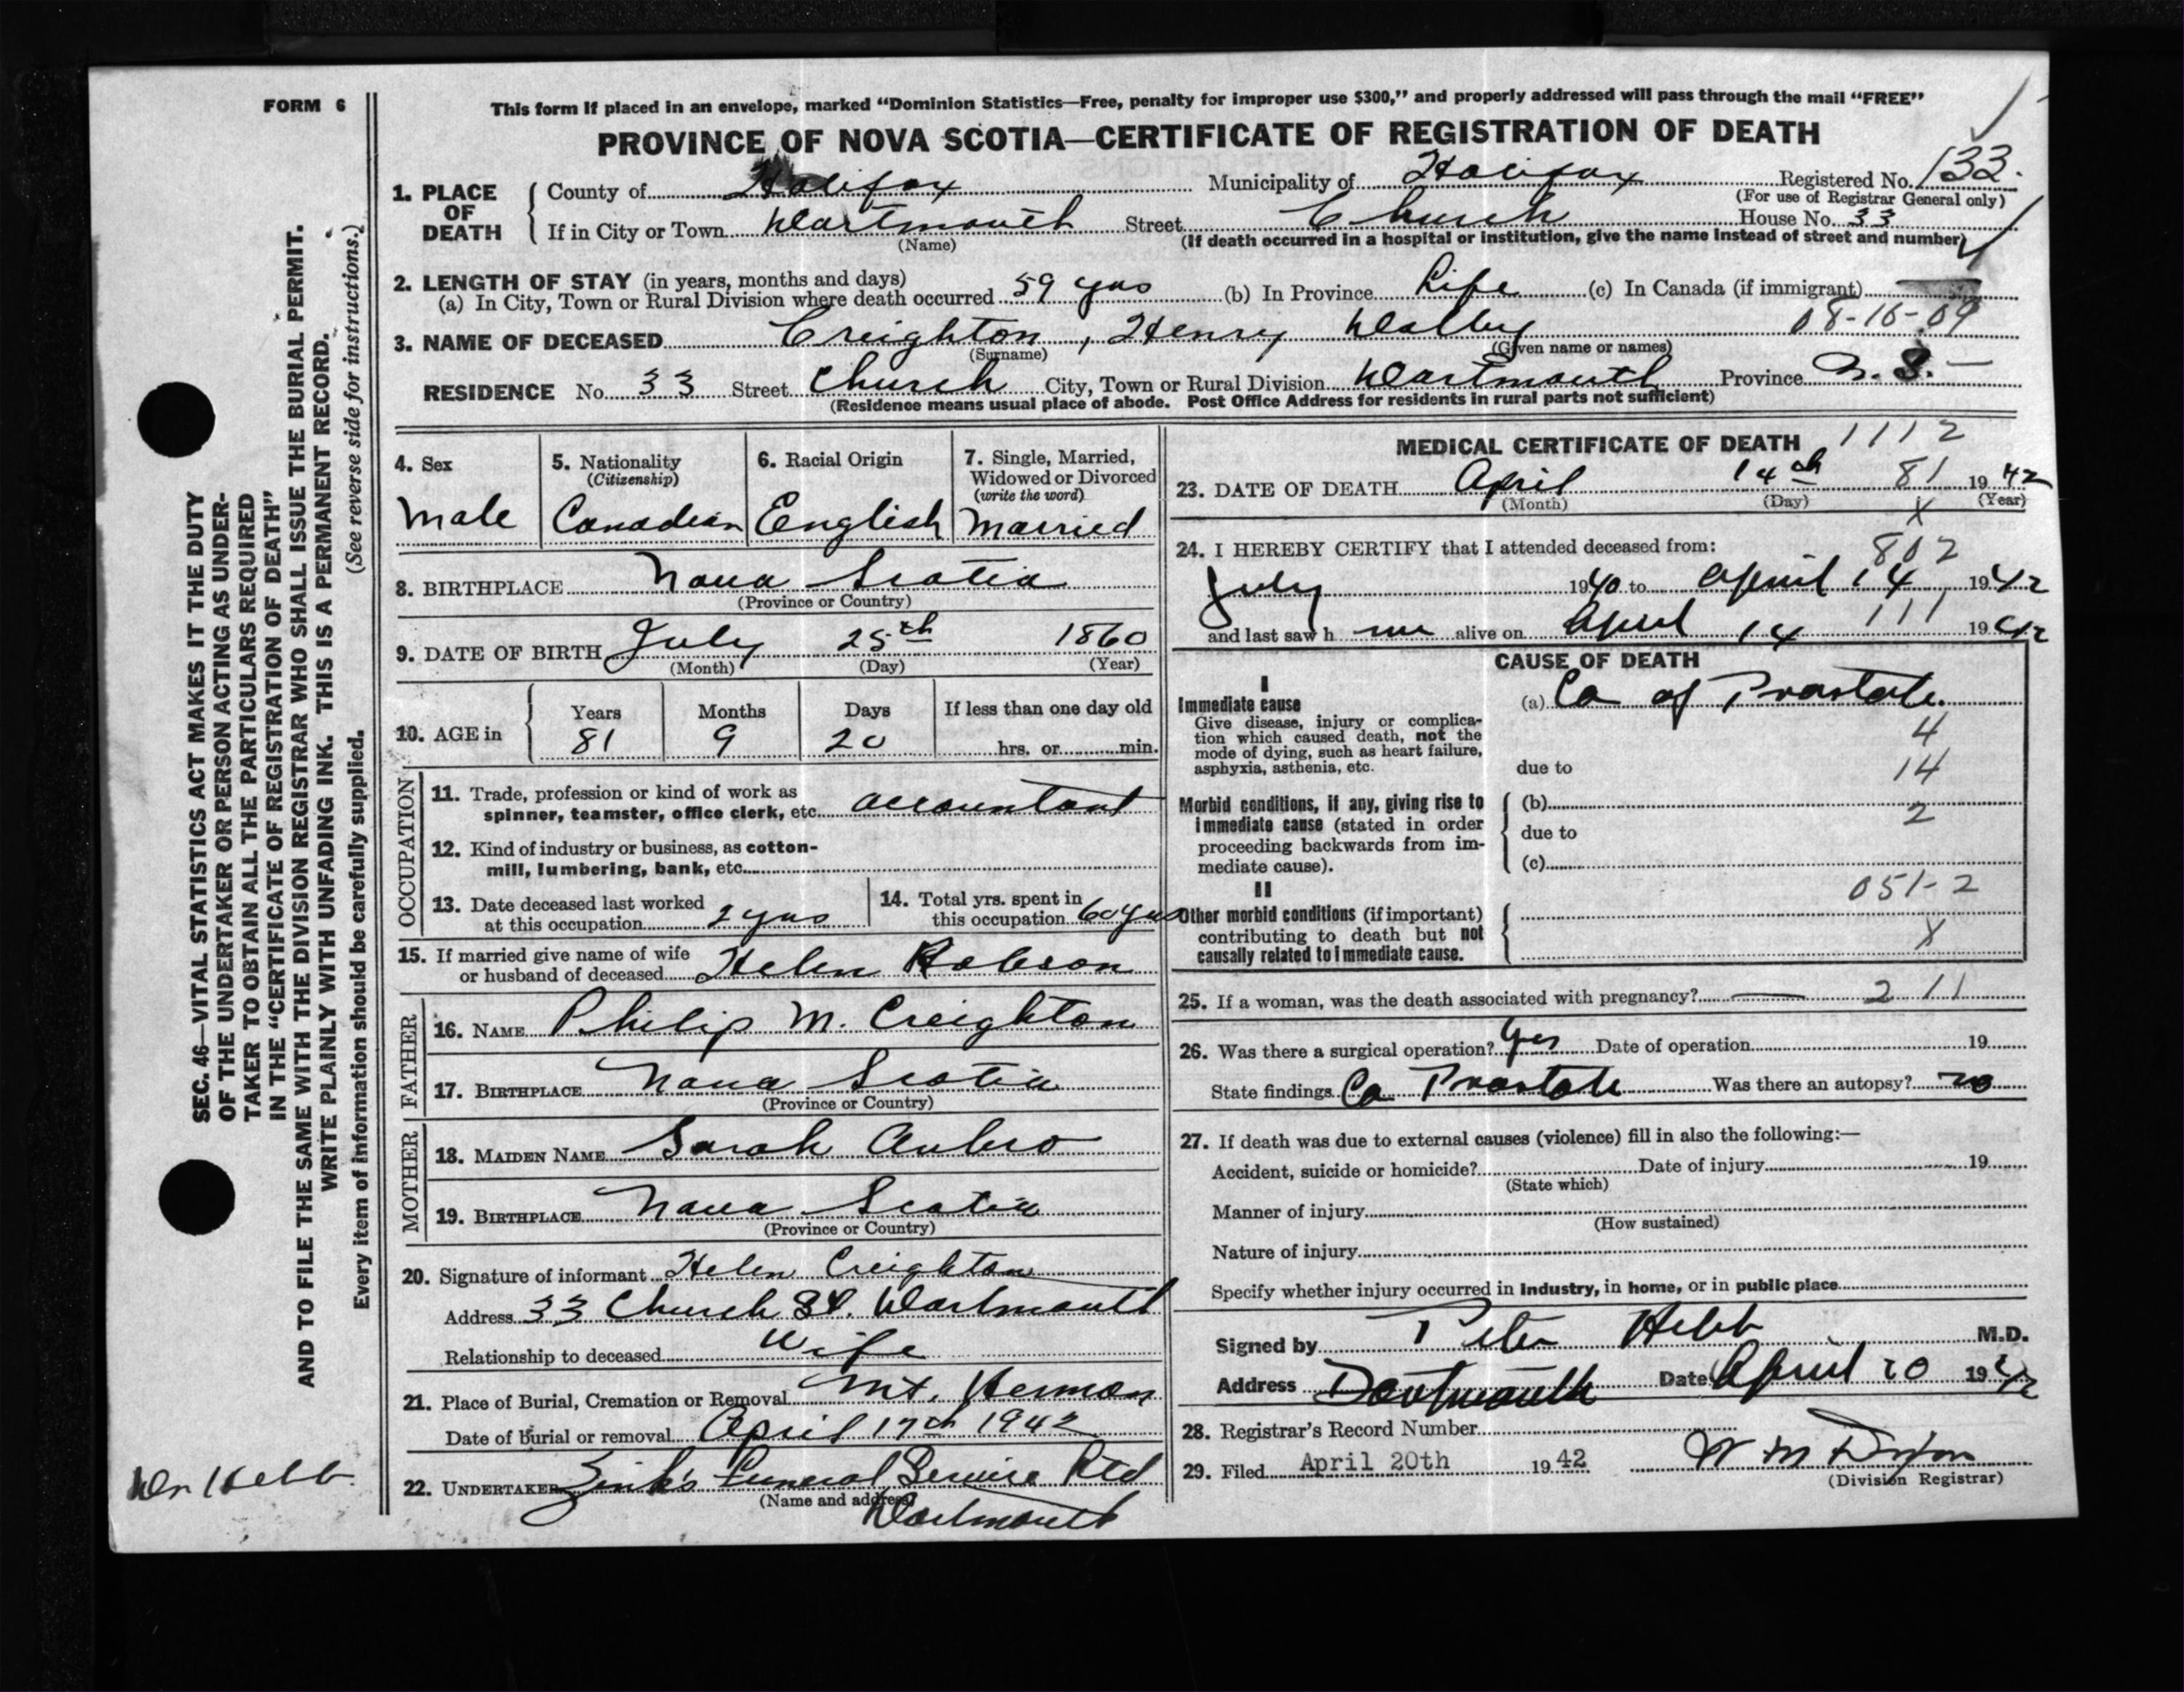 FORM 6
This form if placed in an envelope, marked “Dominion Statistics—Free, penalty for improper use $300,” and properly addressed will pass through the mail “FREE”
PROVINCE OF NOVA SCOTIA—CERTIFICATE OF REGISTRATION OF DEATH
1. PLACE OF DEATH
County of Halifax Municipality of Halifax Registered No. 133.
(For use of Registrar General only)
If in City or Town Dartmouth Street Church House No. 33
(Name) (If death occurred in a hospital or institution, give the name instead of street and number)
2. LENGTH OF STAY (in years, months and days)
(a) In City, Town or Rural Division where death occurred 59 yrs (b) In Province Life (c) In Canada (if immigrant)
08-16-09
3. NAME OF DECEASED Creighton, Henry
(Surname) (Given name or names)
RESIDENCE No. 33 Street Church City, Town or Rural Division Dartmouth Province N. S.
(Residence means usual place of abode. Post Office Address for residents in rural parts not sufficient)
4. Sex
Male
5. Nationality
(Citizenship)
Canadian
6. Racial Origin
English
7. Single, Married,
Widowed or Divorced
(write the word)
Married
8. BIRTHPLACE Nova Scotia
(Province or Country)
9. DATE OF BIRTH July 25th 1860
(Month) (Day) (Year)
10. AGE in
Years Months Days If less than one day old
81 9 20 hrs. or min.
OCCUPATION
11. Trade, profession or kind of work as
spinner, teamster, office clerk, etc. accountant
12. Kind of industry or business, as cotton-
mill, lumbering, bank, etc.
13. Date deceased last worked
at this occupation 2 yrs
14. Total yrs. spent in
this occupation 60 yrs
15. If married give name of wife
or husband of deceased Helen Robson
FATHER
16. NAME Philip M. Creighton
17. BIRTHPLACE Nova Scotia
(Province or Country)
MOTHER
18. MAIDEN NAME Sarah
19. BIRTHPLACE Nova Scotia
(Province or Country)
20. Signature of informant Helen Creighton
Address 33 Church St. Dartmouth
Relationship to deceased Wife
21. Place of Burial, Cremation or Removal Mt. Hermon
Date of burial or removal April 17th 1942
22. UNDERTAKER Zink's Funeral Service Ltd
(Name and address)
Dartmouth
MEDICAL CERTIFICATE OF DEATH 1112
23. DATE OF DEATH April 14th 81 1942
(Month) (Day) (Year)
X
24. I HEREBY CERTIFY that I attended deceased from:
802
July 1940 to April 14 1942
and last saw h im alive on April 14 111 1942
CAUSE OF DEATH
I
Immediate cause
Give disease, injury or complica-
tion which caused death, not the
mode of dying, such as heart failure,
asphyxia, asthenia, etc.
(a) Ca of Prostate.
4
due to 14
Morbid conditions, if any, giving rise to
immediate cause (stated in order
proceeding backwards from im-
mediate cause).
(b)
2
due to
(c)
051-2
II
Other morbid conditions (if important)
contributing to death but not
causally related to immediate cause.
X
25. If a woman, was the death associated with pregnancy? — 2 11
26. Was there a surgical operation? Yes Date of operation 19
State findings Ca Prostate Was there an autopsy? no
27. If death was due to external causes (violence) fill in also the following:—
Accident, suicide or homicide? Date of injury 19
(State which)
Manner of injury
(How sustained)
Nature of injury
Specify whether injury occurred in Industry, in home, or in public place
Signed by Peter Hebb M.D.
Address Dartmouth Date April 20 1942
28. Registrar's Record Number
29. Filed April 20th 1942 W M
(Division Registrar)
SEC. 46—VITAL STATISTICS ACT MAKES IT THE DUTY
OF THE UNDERTAKER OR PERSON ACTING AS UNDER-
TAKER TO OBTAIN ALL THE PARTICULARS REQUIRED
IN THE “CERTIFICATE OF REGISTRATION OF DEATH”
AND TO FILE THE SAME WITH THE DIVISION REGISTRAR WHO SHALL ISSUE THE BURIAL PERMIT.
WRITE PLAINLY WITH UNFADING INK. THIS IS A PERMANENT RECORD.
Every item of information should be carefully supplied. (See reverse side for instructions.)
Dr Hebb